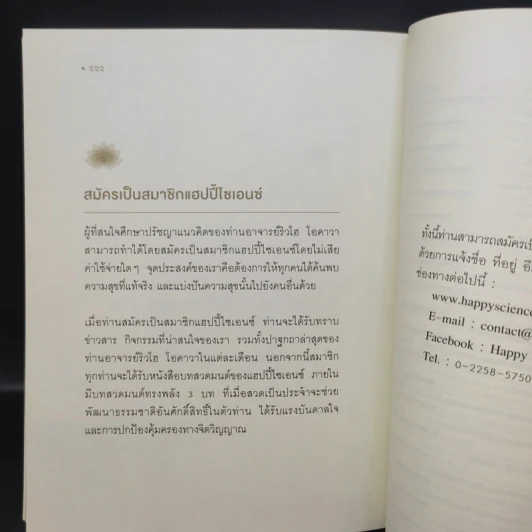 • ๒๒๒
สมัครเป็นสมาชิกแฮปปี้ไซเอนซ์
ผู้ที่สนใจศึกษาปรัชญาแนวคิดของท่านอาจารย์ริวโฮ โอคาวา
สามารถทำได้โดยสมัครเป็นสมาชิกแฮปปี้ไซเอนซ์โดยไม่เสีย
ค่าใช้จ่ายใดๆ จุดประสงค์ของเราคือต้องการให้ทุกคนได้ค้นพบ
ความสุขที่แท้จริง และแบ่งปันความสุขนั้นไปยังคนอื่นด้วย
เมื่อท่านสมัครเป็นสมาชิกแฮปปี้ไซเอนซ์ ท่านจะได้รับทราบ
ข่าวสาร กิจกรรมที่น่าสนใจของเรา รวมทั้งปาฐกถาล่าสุดของ
ท่านอาจารย์ริวโฮ โอคาวาในแต่ละเดือน นอกจากนี้สมาชิก
ทุกท่านจะได้รับหนังสือบทสวดมนต์ของแฮปปี้ไซเอนซ์ ภายใน
มีบทสวดมนต์ทรงพลัง 3 บท ที่เมื่อสวดเป็นประจำจะช่วย
พัฒนาธรรมชาติอันศักดิ์สิทธิ์ในตัวท่าน ได้รับแรงบันดาลใจ
และการปกป้องคุ้มครองทางจิตวิญญาณ
ทั้งนี้ท่านสามารถสมัครเป็
ด้วยการแจ้งชื่อ ที่อยู่ อี
ช่องทางต่อไปนี้ :
www.happyscience
E-mail : contact@
Facebook : Happy
Tel. : 0-2258-5750